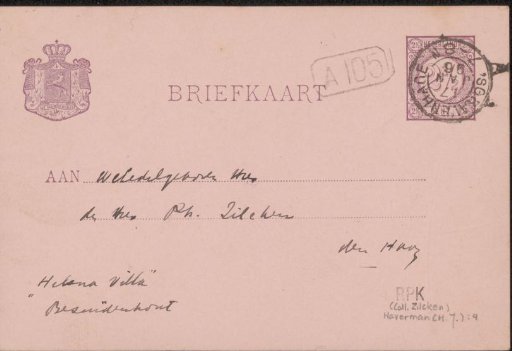 A 105
BRIEFKAART
'SGRAVENHAGE
AAN WelEdelgeboren Heer
den Heer Ph. Zilcken
den Haag
"Helena Villa"
Bezuidenhout
RPK
(Coll. Zilcken)
Haverman (H.